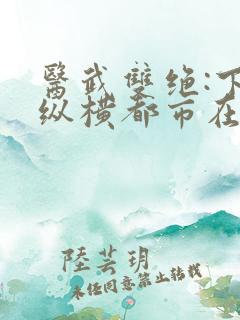 醫武雙绝:下
纵横都市在
陸芸玥
未经同意禁止转载